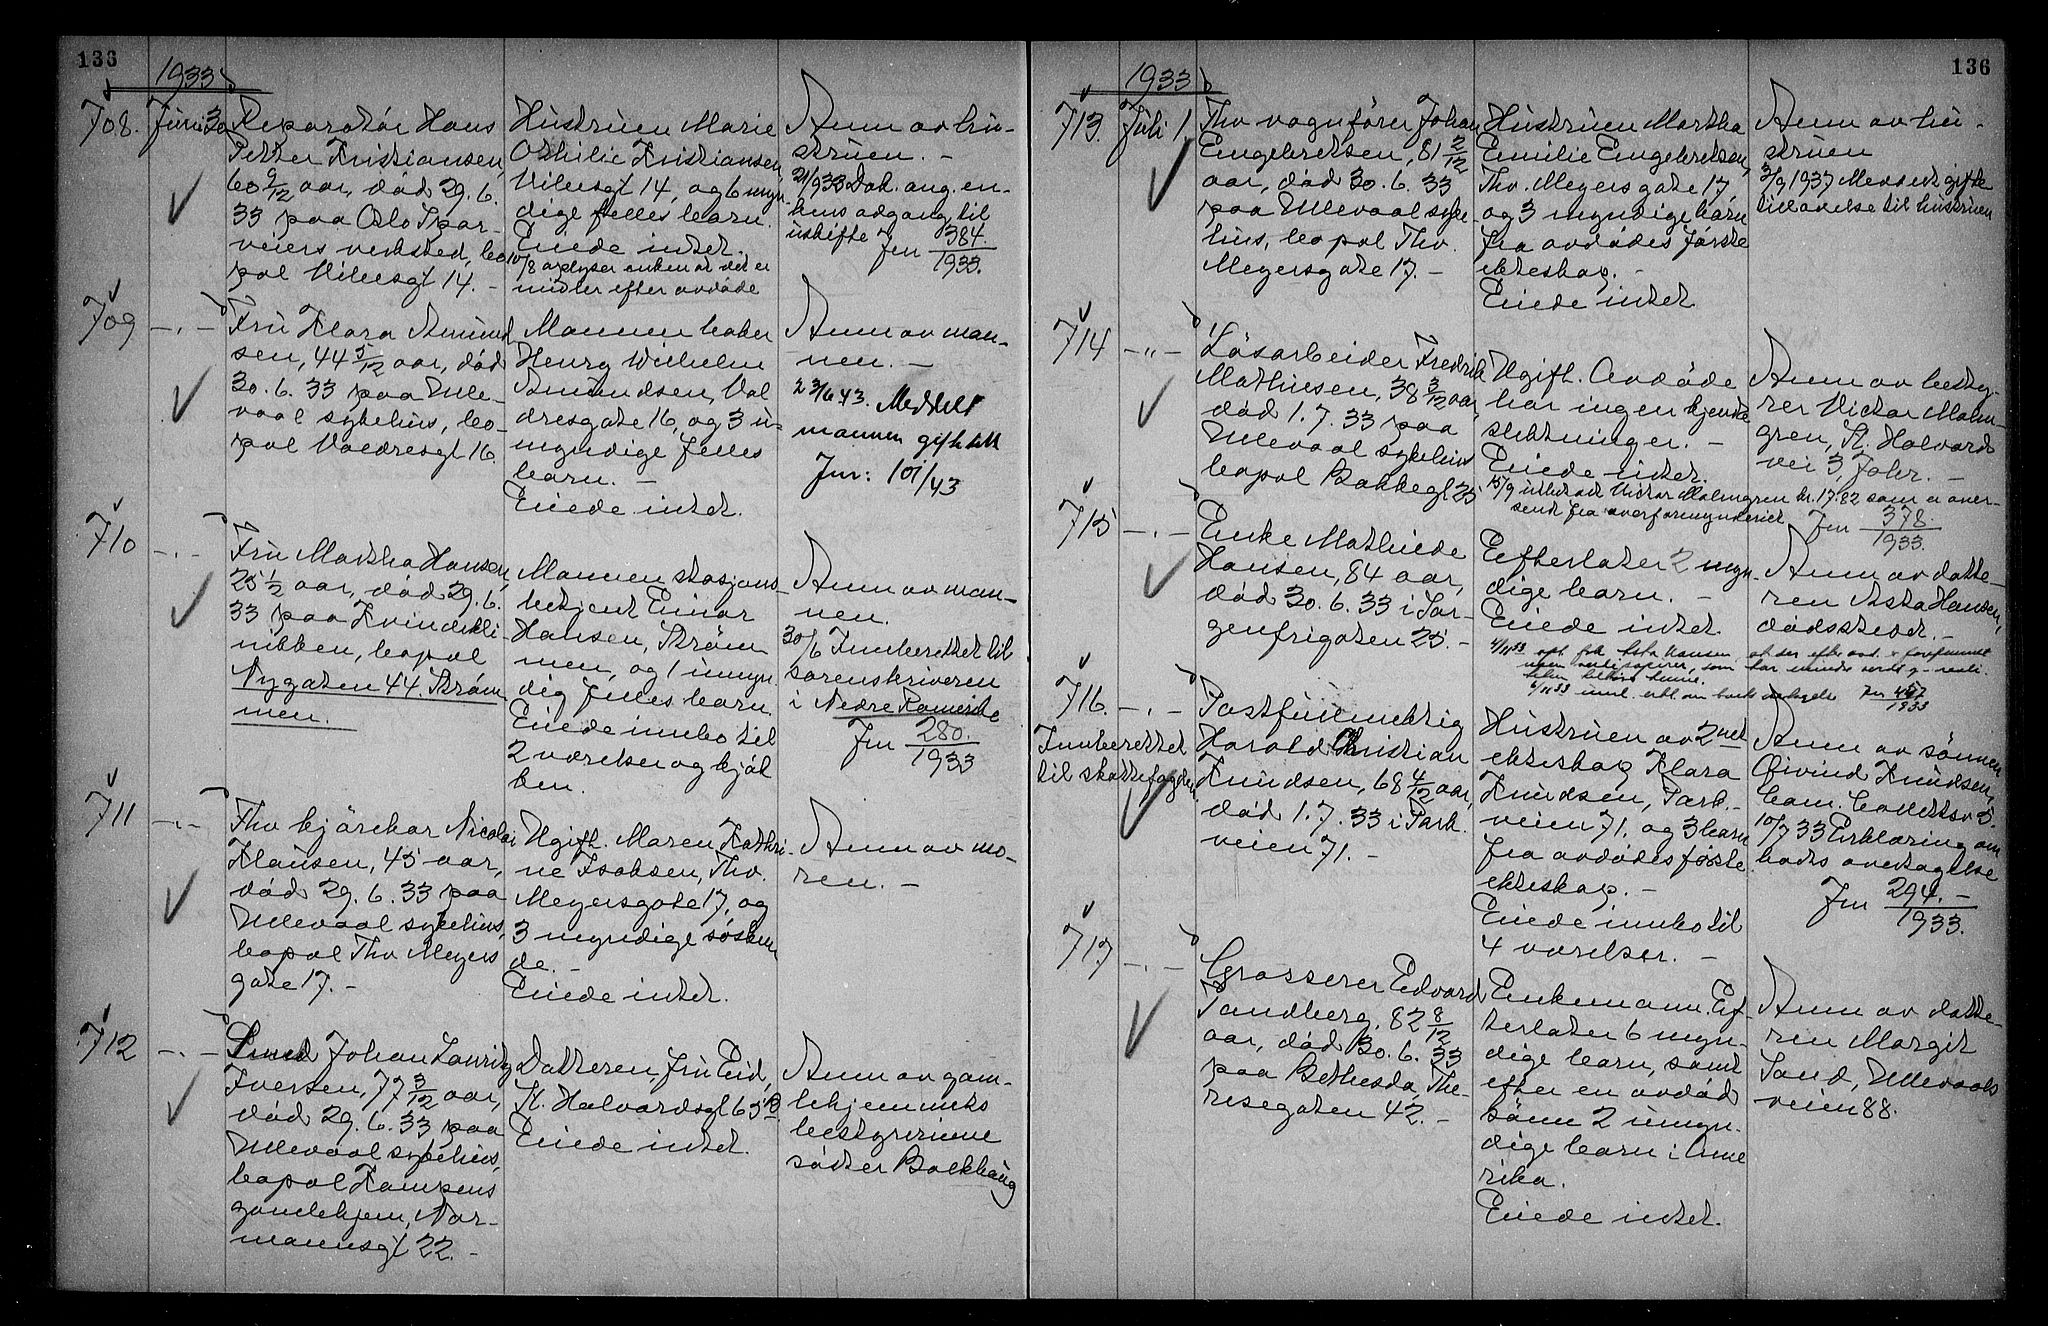 136
1933
708. Juni 30.
Reparatör Hans
Petter Kristiansen,
60 9/12 aar, död 29. 6.
33 paa Oslo Spor-
veiers verksted, bo-
pæl Vibesgt 14. -
Hustruen Marie
Othilie Kristiansen,
Vibesgt 14, og 6 myn-
dige felles barn.
Eiede intet.
10/8 oplyser enken at det er
midler efter avdöde
Anm av hu-
struen. -
21/9 33 Dok. ang. en-
kens adgang til
uskifte Jnr 384.
1933.
709 -"-
Fru Klara Amund
sen, 44 5/12 aar, död
30. 6. 33 paa Ulle-
vaal sykehus, bo-
pæl Valdresgt 16.
Mannen baker
Henry Wilhelm
Amundsen, Val
dresgate 16, og 3 u-
myndige felles
barn. -
Eiede intet.
Anm av man-
nen. -
23/6 43. Meddelt
mannen gift.att
Jnr: 101/43
710 -"-
Fru Martha Hansen,
25 1/2 aar, död 29. 6.
33 paa Kvindekli-
nikken, bopæl
Nygaten 44. Ström
men.
Mannen stasjons-
betjent Einar
Hansen, Ström-
men, og 1 umyn
dig felles barn.
Eiede innbo til
2 værelser og kjök
ken.
Anm av man-
nen.
30/6 Innberettet til
sorenskriveren
i Nedre Romerike
Jnr 280.
1933
711 -"-
Thv kjörekar Nicolai
Klausen, 45 aar,
död 29. 6. 33 paa
Ullevaal sykehus,
bopæl Thv Meyers
gate 17. -
Ugift. Maren Kathri-
ne Isaksen, Thv.
Meyersgate 17, og
3 myndige sösken
de. -
Eiede intet.
Anm av mo-
ren. -
712 -"-
Smed Johan Lauritz
Iversen, 77 3/12 aar,
död 29. 6. 33 paa
Ullevaal sykehus,
bopæl Kampens
gamlehjem, Nor-
mannsgt 22. -
Datteren, fru Eid,
St. Halvardsgt 63 B
Eiede intet.
Anm av gam-
lehjemmets
bestyrerinne
söster Bakkhaug
136
1933
713. Juli 1.
Thv vognförer Johan
Engebretsen, 81 2/12
aar, död 30. 6. 33
paa Ullevaal syke
hus, bopæl Thv.
Meyersgate 17. -
Hustruen Martha
Emilie Engebretsen,
Thv. Meyers gate 17
og 3 myndige barn
fra avdödes förste
ekteskap. -
Eiede intet.
Anm av hu-
struen
3/9 1937 Meddelt gifte
tillatelse til hustruen
714 -"-
Lösarbeider Fredrik
Mathisen, 38 3/12 aar,
död 1. 7. 33 paa
Ullevaal sykehus
bopæl Bakkegt 25
Ugift. Avdöde
har ingen kjendte
slektninger. -
Eiede intet.
15/9 utbetalt Victor Malmgren kr. 17.82 som er over-
sendt fra overformynderiet
Jnr 378
1933.
Anm av besty-
rer Victor Malm-
gren, St. Halvards
vei 3, Jobr. -
715 -"-
Enke Mathilde
Hansen, 84 aar,
död 30. 6. 33 i Sor-
genfrigaten 25. -
Efterlater 2 myn-
dige barn. -
Eiede intet.
4/11 33 opl. frk Asta Hansen at der efter avd. er forefunnet
noen verdipapirer, som har mindre verdi
6/11 33 innl. erkl. om boets overtagelse Jnr 457
1933
Anm av datte-
ren Asta Hansen,
dödsstedet. -
716. -"-
Innberettet
til skattefogden.
Postfullmektig
Harald Christian
Knudsen, 68 4/12 aar,
död 1. 7. 33 i Park-
veien 71. -
Hustruen av 2net
ekteskap Klara
Knudsen, Park-
veien 71, og 3 barn
fra avdödes förste
ekteskap. -
Eiede innbo til
4 værelser. -
Anm av sönnen
Öivind Knudsen,
Cam. Collettsv 5.
10/7 33 Erklæring om
boets overtagelse
Jnr 294. -
1933.
717 -"-
Grosserer Edvard
Sandberg, 82 8/12
aar, död 30. 6. 33
paa Bethesda, The-
resegaten 42. -
Enkemann. Ef-
terlater 6 myn-
dige barn, samt
efter en avdöd
sönn 2 umyn-
dige barn i Ame
rika.
Eiede intet.
Anm av datte-
ren Margit
Sand, Ullevaals
veien 88.